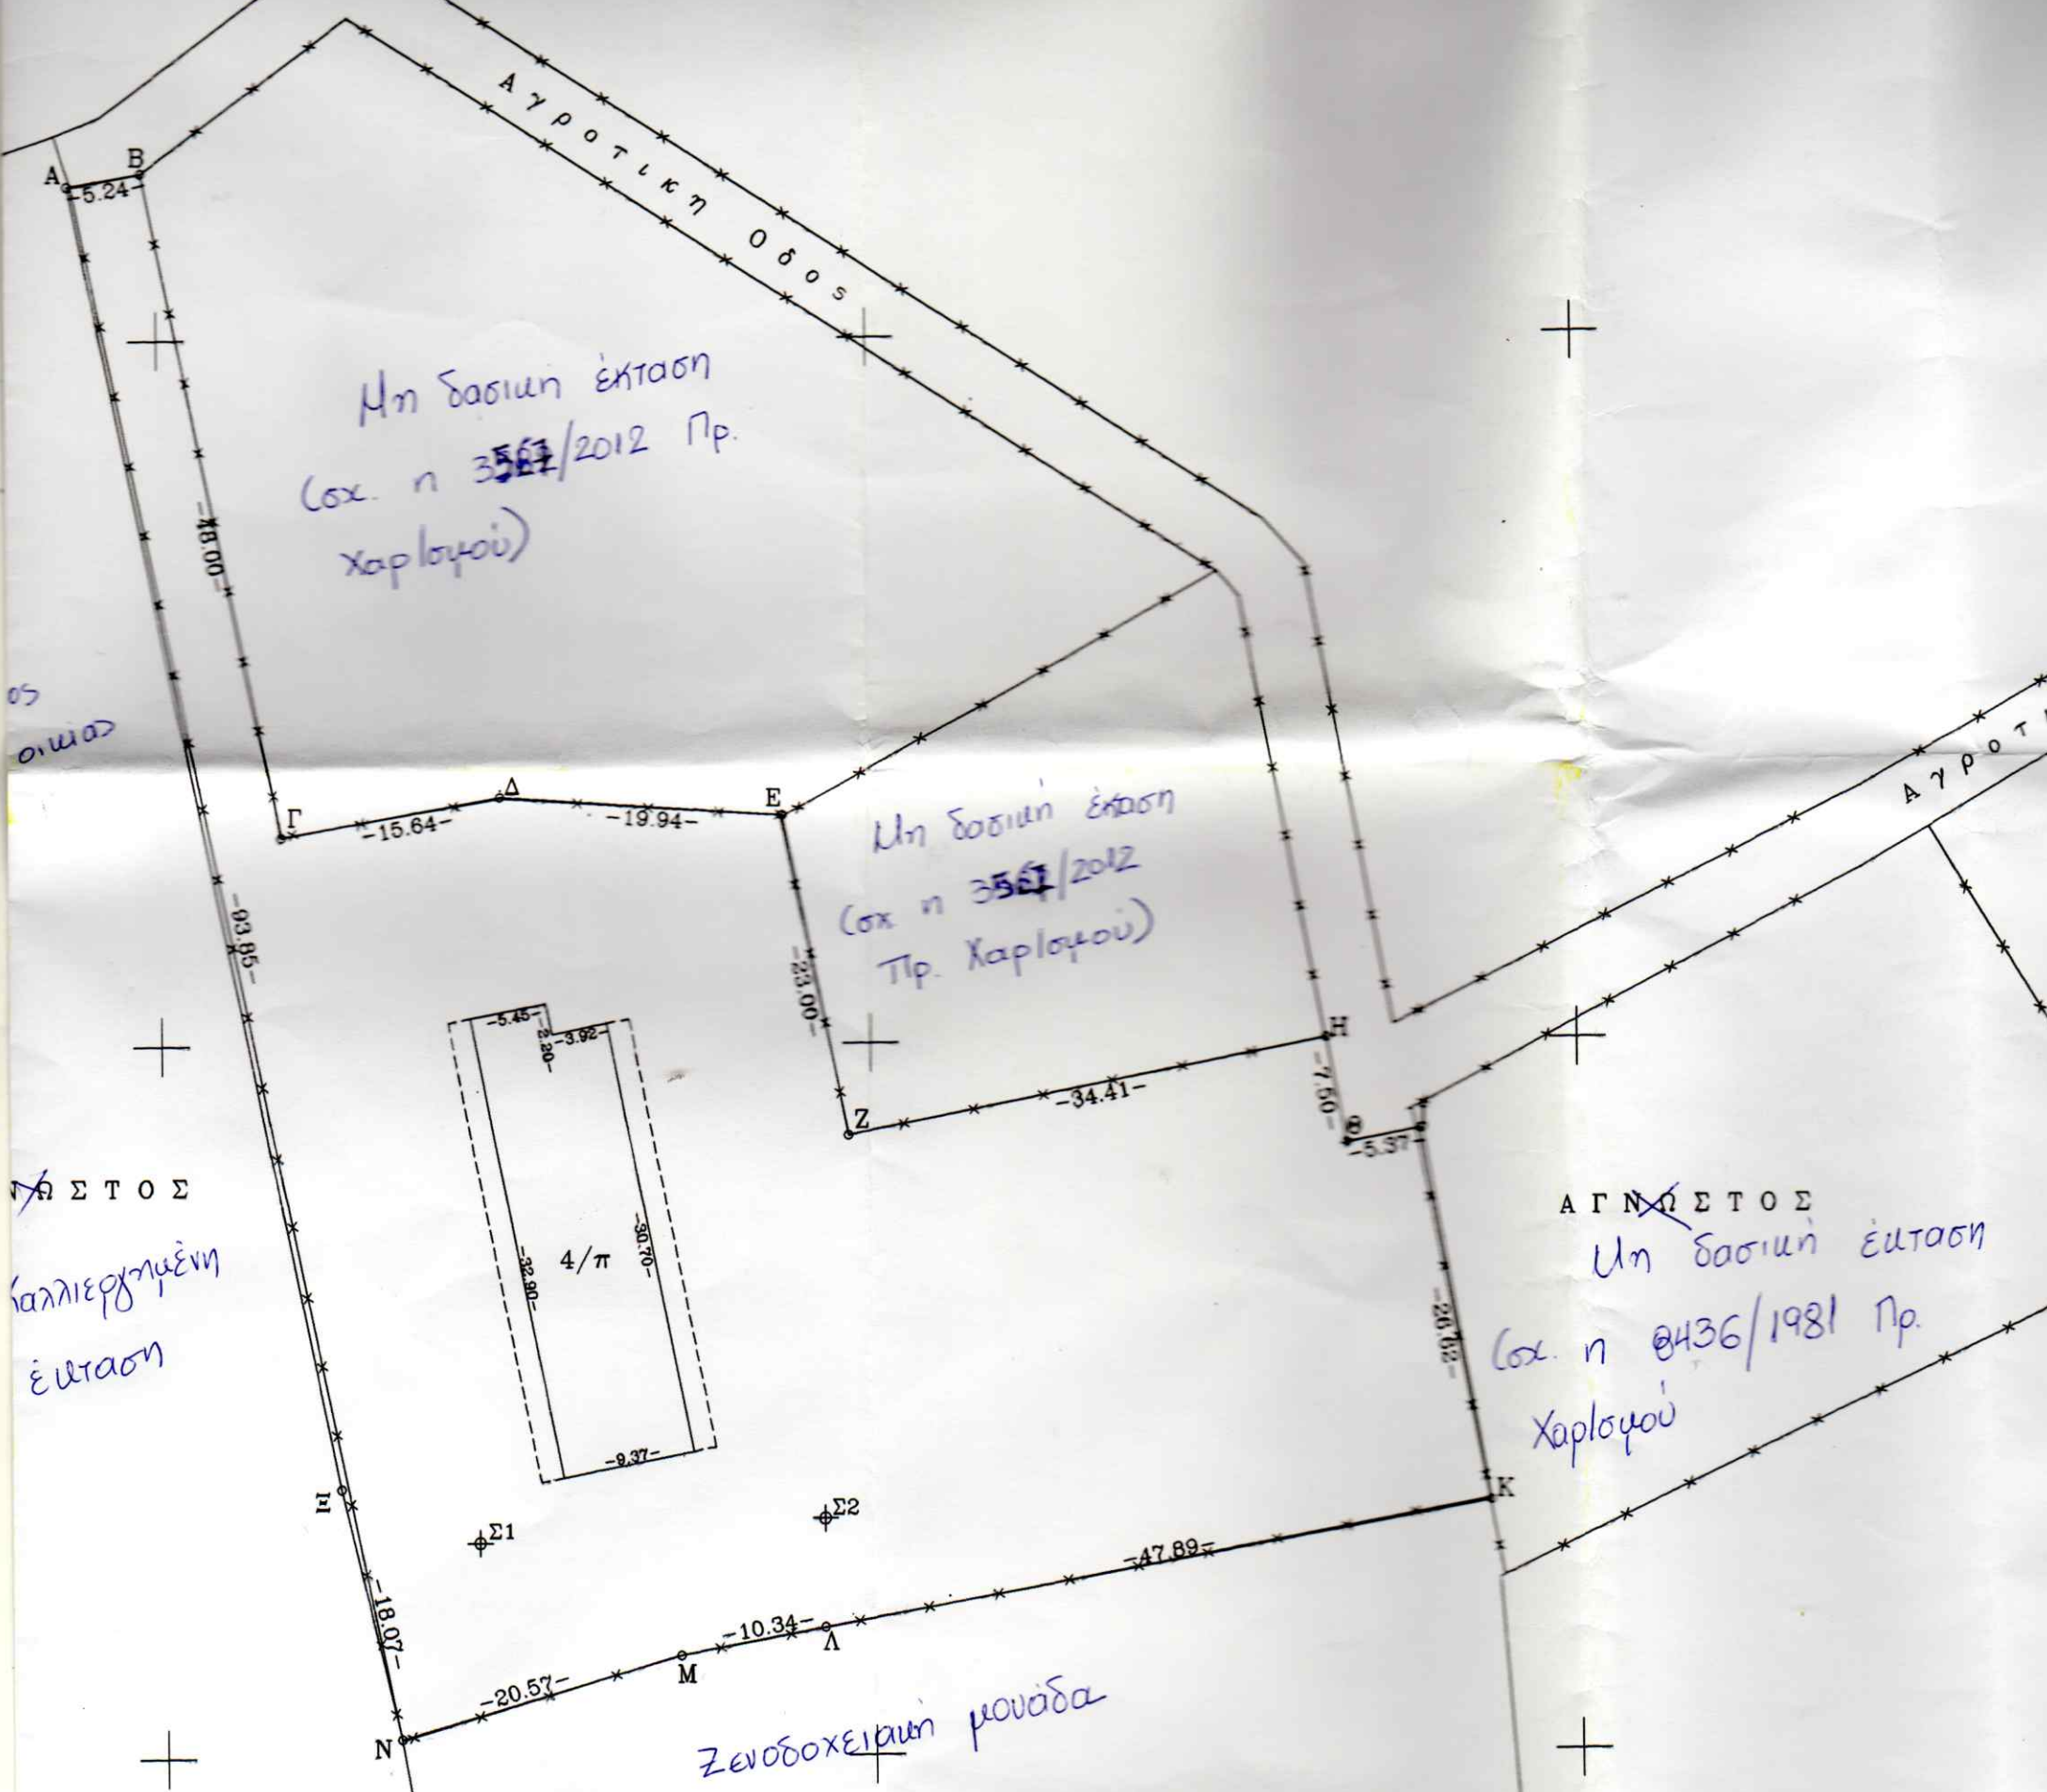 Αγροτικη Οδος
Α
Β
-5.24-
Μη δασική έκταση
(σχ. η /2012 Πρ.
Χαρ/σμού)
-48.00-
ος
οικίας
Γ
-15.64-
Δ
-19.94-
Ε
Μη δασική έκταση
(σχ η /2012
Πρ. Χαρ/σμού)
Αγροτ
-93.85-
-23.00-
-5.45-
-2.20-
-3.92-
Η
-7.50-
Ζ
-34.41-
Θ
-5.37-
ΝΩΣΤΟΣ
καλλιεργημένη
έκταση
-32.90-
4/π
-30.70-
-9.37-
ΑΓΝΩΣΤΟΣ
Μη δασική έκταση
(σχ. η 8436/1981 Πρ.
Χαρ/σμού
-26.62-
Κ
Ξ
Σ1
Σ2
-47.89-
-18.07-
-10.34-
Λ
Μ
-20.57-
Ν
Ξενοδοχειακή μονάδα